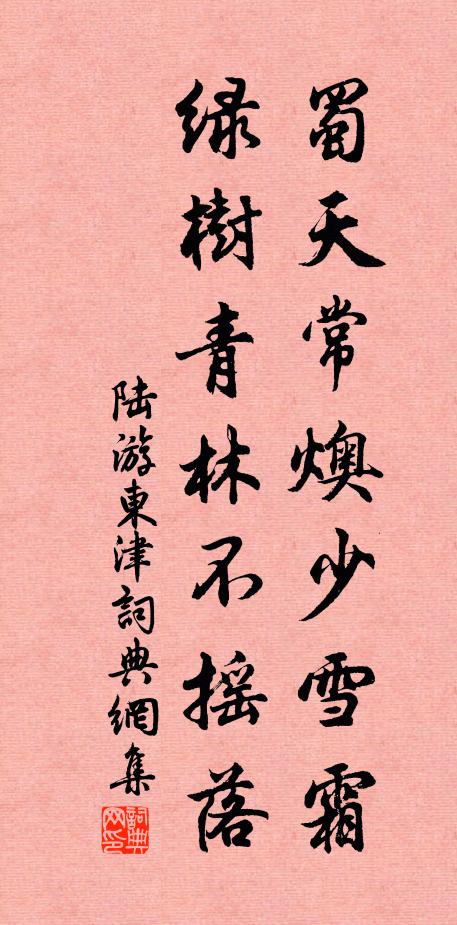 蜀天常燠少雪霜
绿樹青林不摇落
陆游東津詞典網集
詞典网印